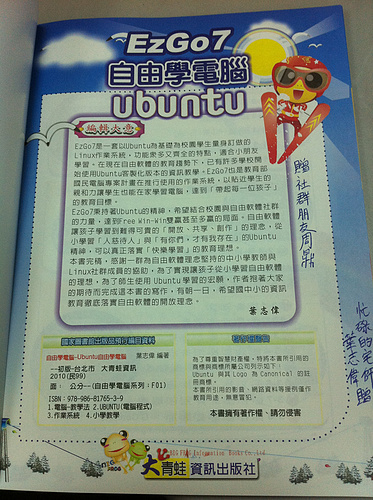 EzGo7
自由學電腦
ubuntu
編輯大意
EzGo7是一套以Ubuntu為基礎為校園學生量身訂做的
Linux作業系統，功能眾多又齊全的特點，適合小朋友
學習。在現在自由軟體的教育趨勢下，已有許多學校開
始使用Ubuntu客製化版本的資訊教學。EzGo7也是教育部
國民電腦專案計畫在推行使用的作業系統，以貼近學生的
親和力讓學生也能在家學習電腦，達到「帶起每一位孩子」
的教育目標。
EzGo7秉持著Ubuntu的精神，希望結合校園與自由軟體社群
的力量，達到Free Win-Win雙贏甚至多贏的局面。自由軟體
讓孩子學習到難得可貴的「開放、共享、創作」的理念，從
小學習「人慈待人」與「有你們，才有我存在」的Ubuntu
精神，可以真正落實「快樂學習」的教育理想。
本書完稿，感謝一群為自由軟體理念堅持的中小學教師與
Linux社群成員的協助，為了實現讓孩子從小學習自由軟體
的理想，為了師生使用 Ubuntu學習的宏願，作者抱著大家
的期待而完成這本書的寫作，有朝一日，希望國中小的資訊
教育徹底落實自由軟體的開放理念。
葉志偉
贈社群朋友周
忙碌的宅
葉志偉 贈
國家圖書館出版品預行編目資料
自由學電腦-Ubuntu自由學電腦 葉志偉 編著
--初版-台北市 大青蛙資訊
2010(民99)
面： 公分--(自由學電腦系列：F01)
ISBN：978-986-81765-3-9
1.電腦-教學法 2.UBUNTU(電腦程式)
3.作業系統 4.小學教學
為了尊重智慧財產權，特將本書所引用的
商標與商標所屬公司列示如下：
Ubuntu 與其 Logo 為 Canonical 的註
冊商標。
本書所引用的影音、網路資料等僅列僅作
教育用途，無意冒犯。
本書擁有著作權‧請勿侵害
BIG FROG Information Books Co.,Ltd
大青蛙 資訊出版社